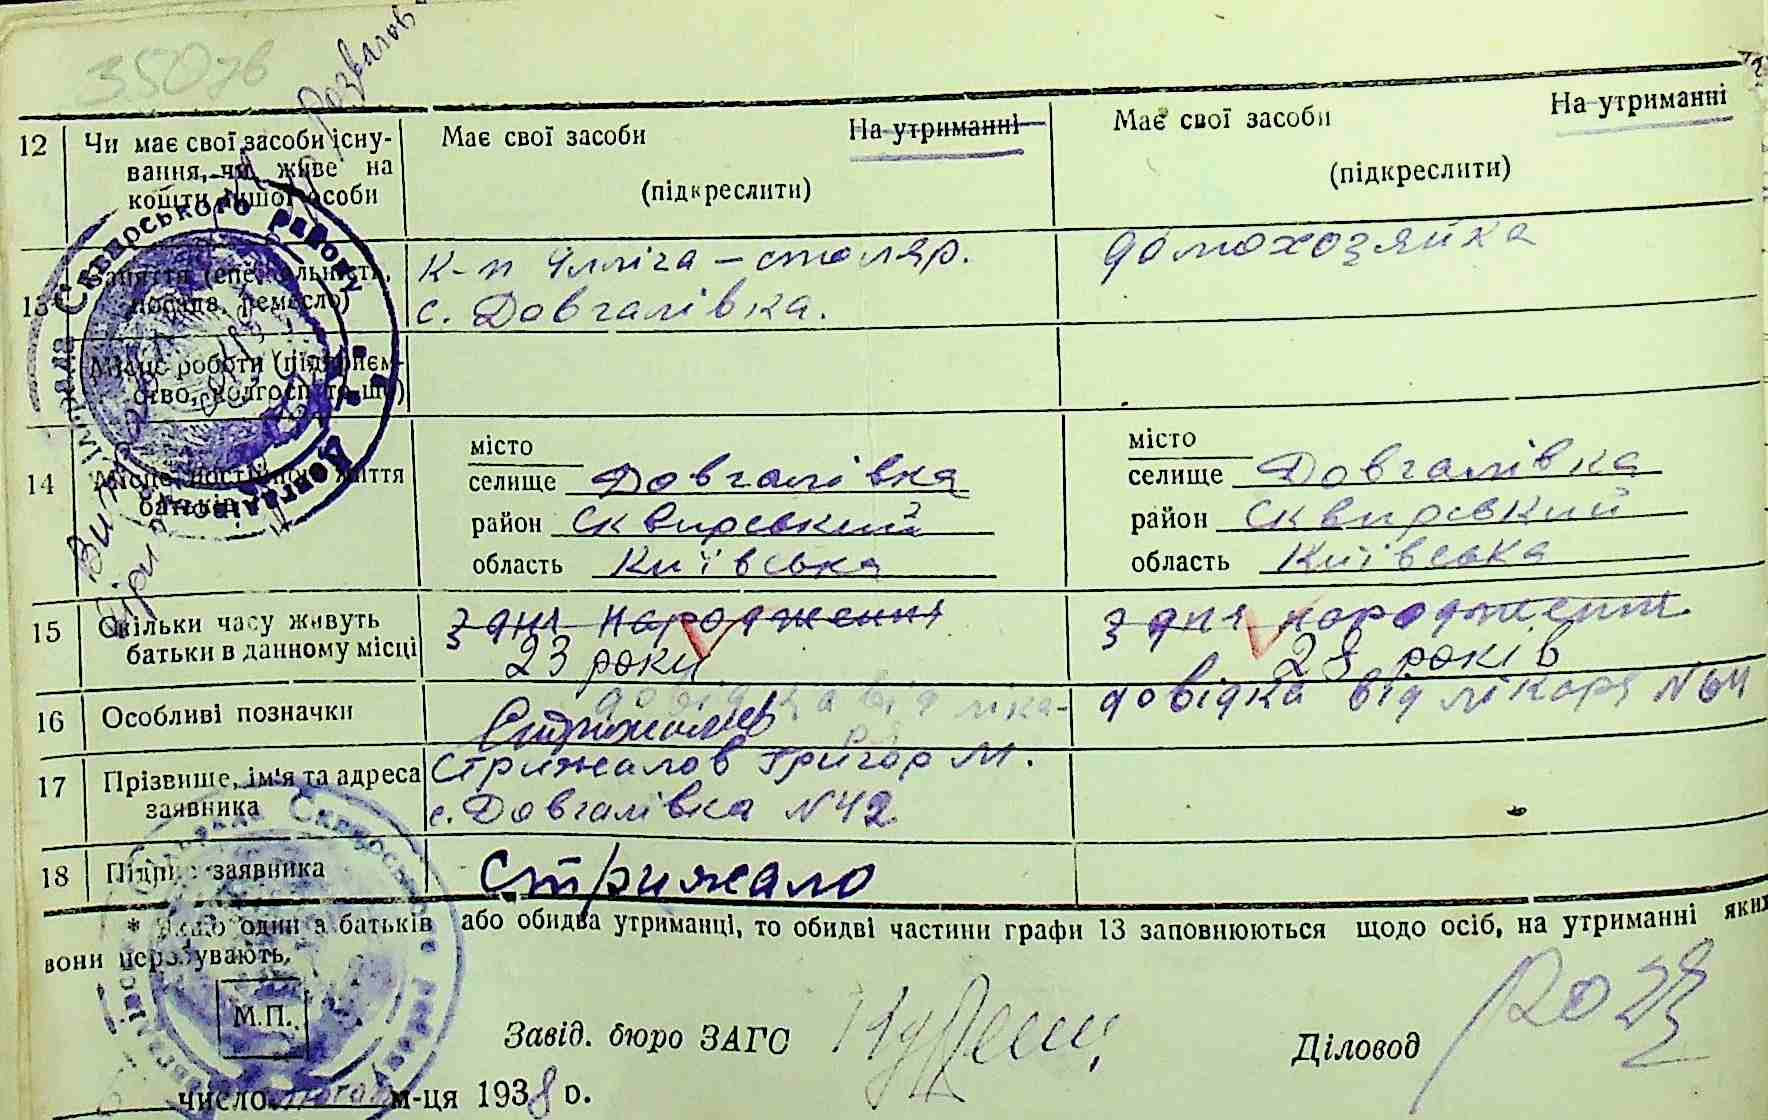 350зв
12 Чи має свої засоби існу- Має свої засоби На утриманні Має свої засоби На утриманні
вання, чи живе на
кошти іншої особи (підкреслити) (підкреслити)
13 Заняття (спеціальність, К-п Ілліча – столяр. домохозяйка
посада, ремесло) с. Довгалівка.
Місце роботи (підприєм-
ство, колгосп то-що)
місто місто
14 Місце постійного життя селище Довгалівка селище Довгалівка
батьків район Сквирський район Сквирский
область Київська область Київська
15 Скільки часу живуть з дня народження з дня народження
батьки в данному місці 23 роки 28 років
16 Особливі позначки довідка від ліка- довідка від лікаря N64
ря
17 Прізвище, ім'я та адреса Стрижалов Григор М.
заявника с. Довгалівка N42
18 Підпис заявника Стрижало
* Якщо один з батьків або обидва утриманці, то обидві частини графи 13 заповнюються щодо осіб, на утриманні яких
вони перебувають.
М.П.
Завід. бюро ЗАГС Діловод
число лютого м-ця 1938 р.